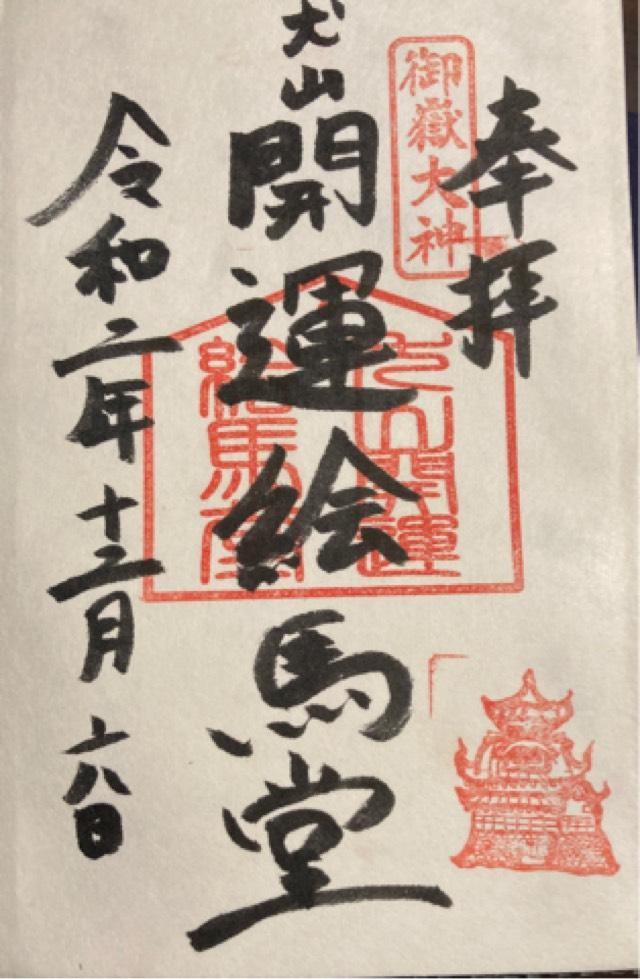 奉拝
御嶽大神
犬山
開運絵馬堂
犬山開運
絵馬堂
令和二年十二月六日